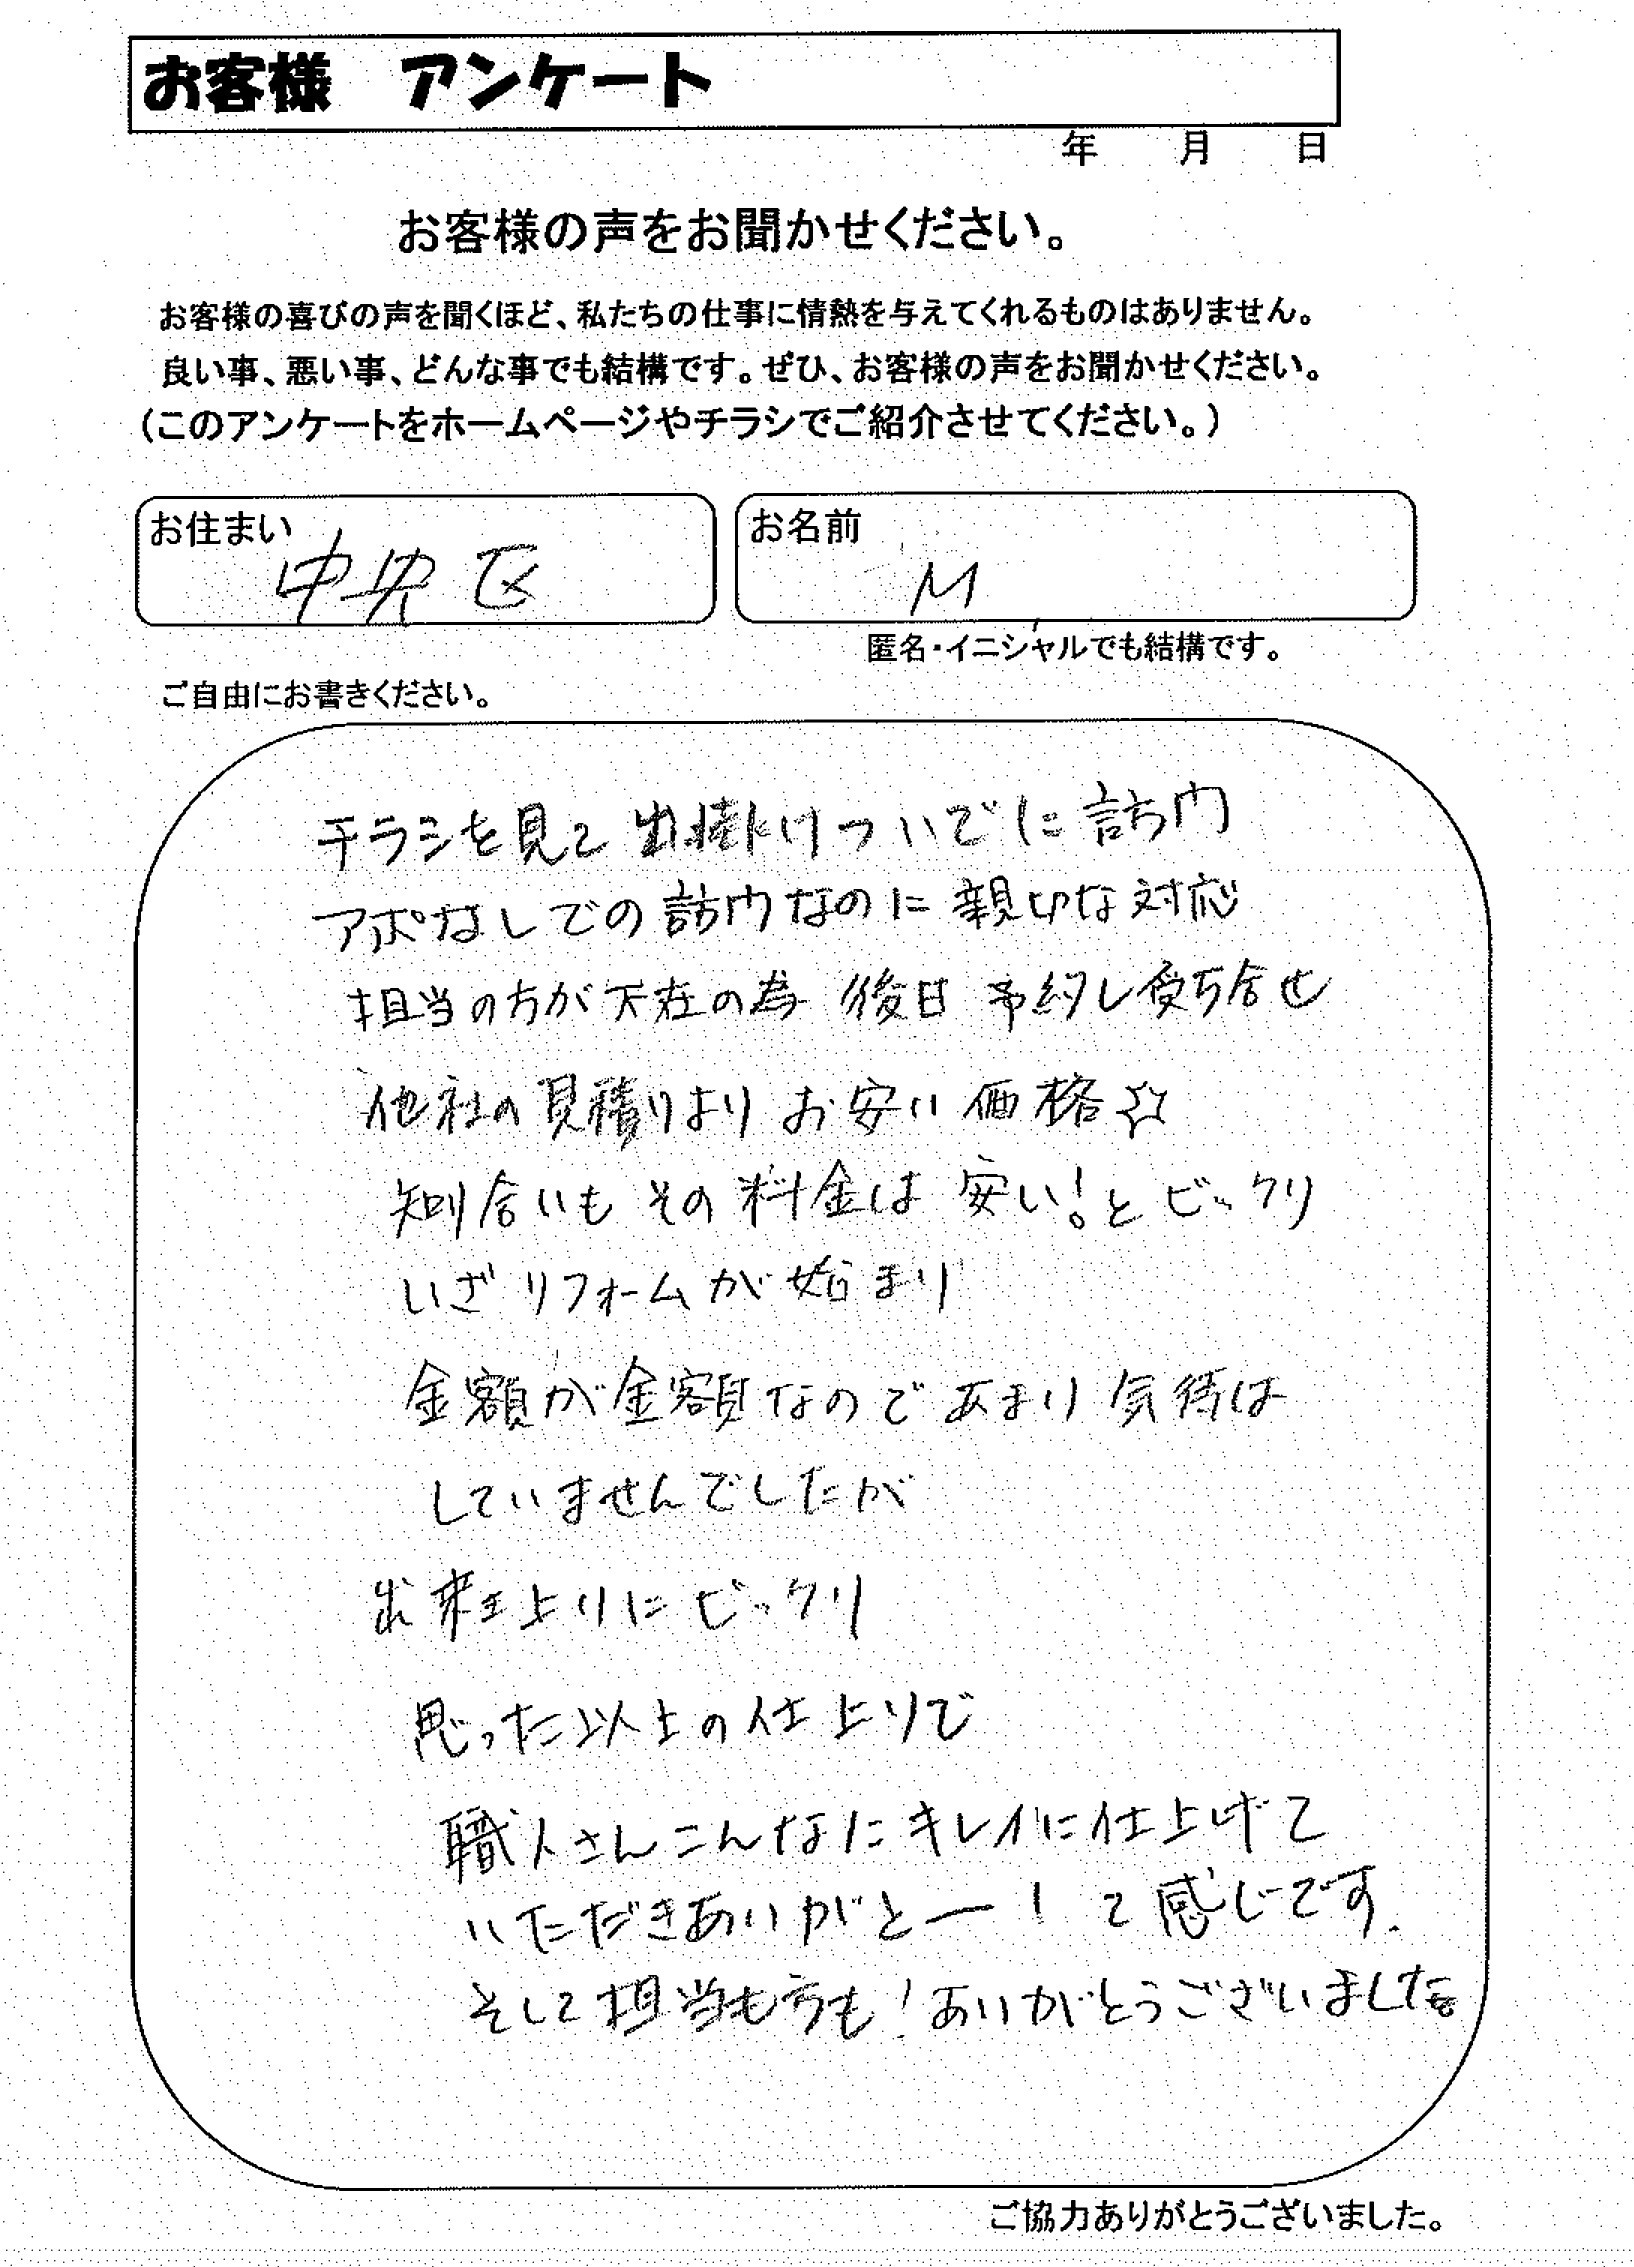 お客様 アンケート
年 月 日
お客様の声をお聞かせください。
お客様の喜びの声を聞くほど、私たちの仕事に情熱を与えてくれるものはありません。
良い事、悪い事、どんな事でも結構です。ぜひ、お客様の声をお聞かせください。
(このアンケートをホームページやチラシでご紹介させてください。)
お住まい 中央区
お名前 M
匿名・イニシャルでも結構です。
ご自由にお書きください。
チラシを見て 出掛けついでに 訪問
アポなしでの訪問なのに 親切な対応
担当の方が不在の為 後日 予約し打ち合せ
他社の見積りより お安い 価格☆
知り合いも その料金は 安い!とビックリ
いざ リフォームが 始まり
金額が金額なので あまり 気待は
していませんでしたが
出来上りにビックリ
思った以上の仕上りで
職人さんこんなにキレイに仕上げて
いただきありがとー! て感じです.
そして担当も方も!ありがとうございました。
ご協力ありがとうございました。